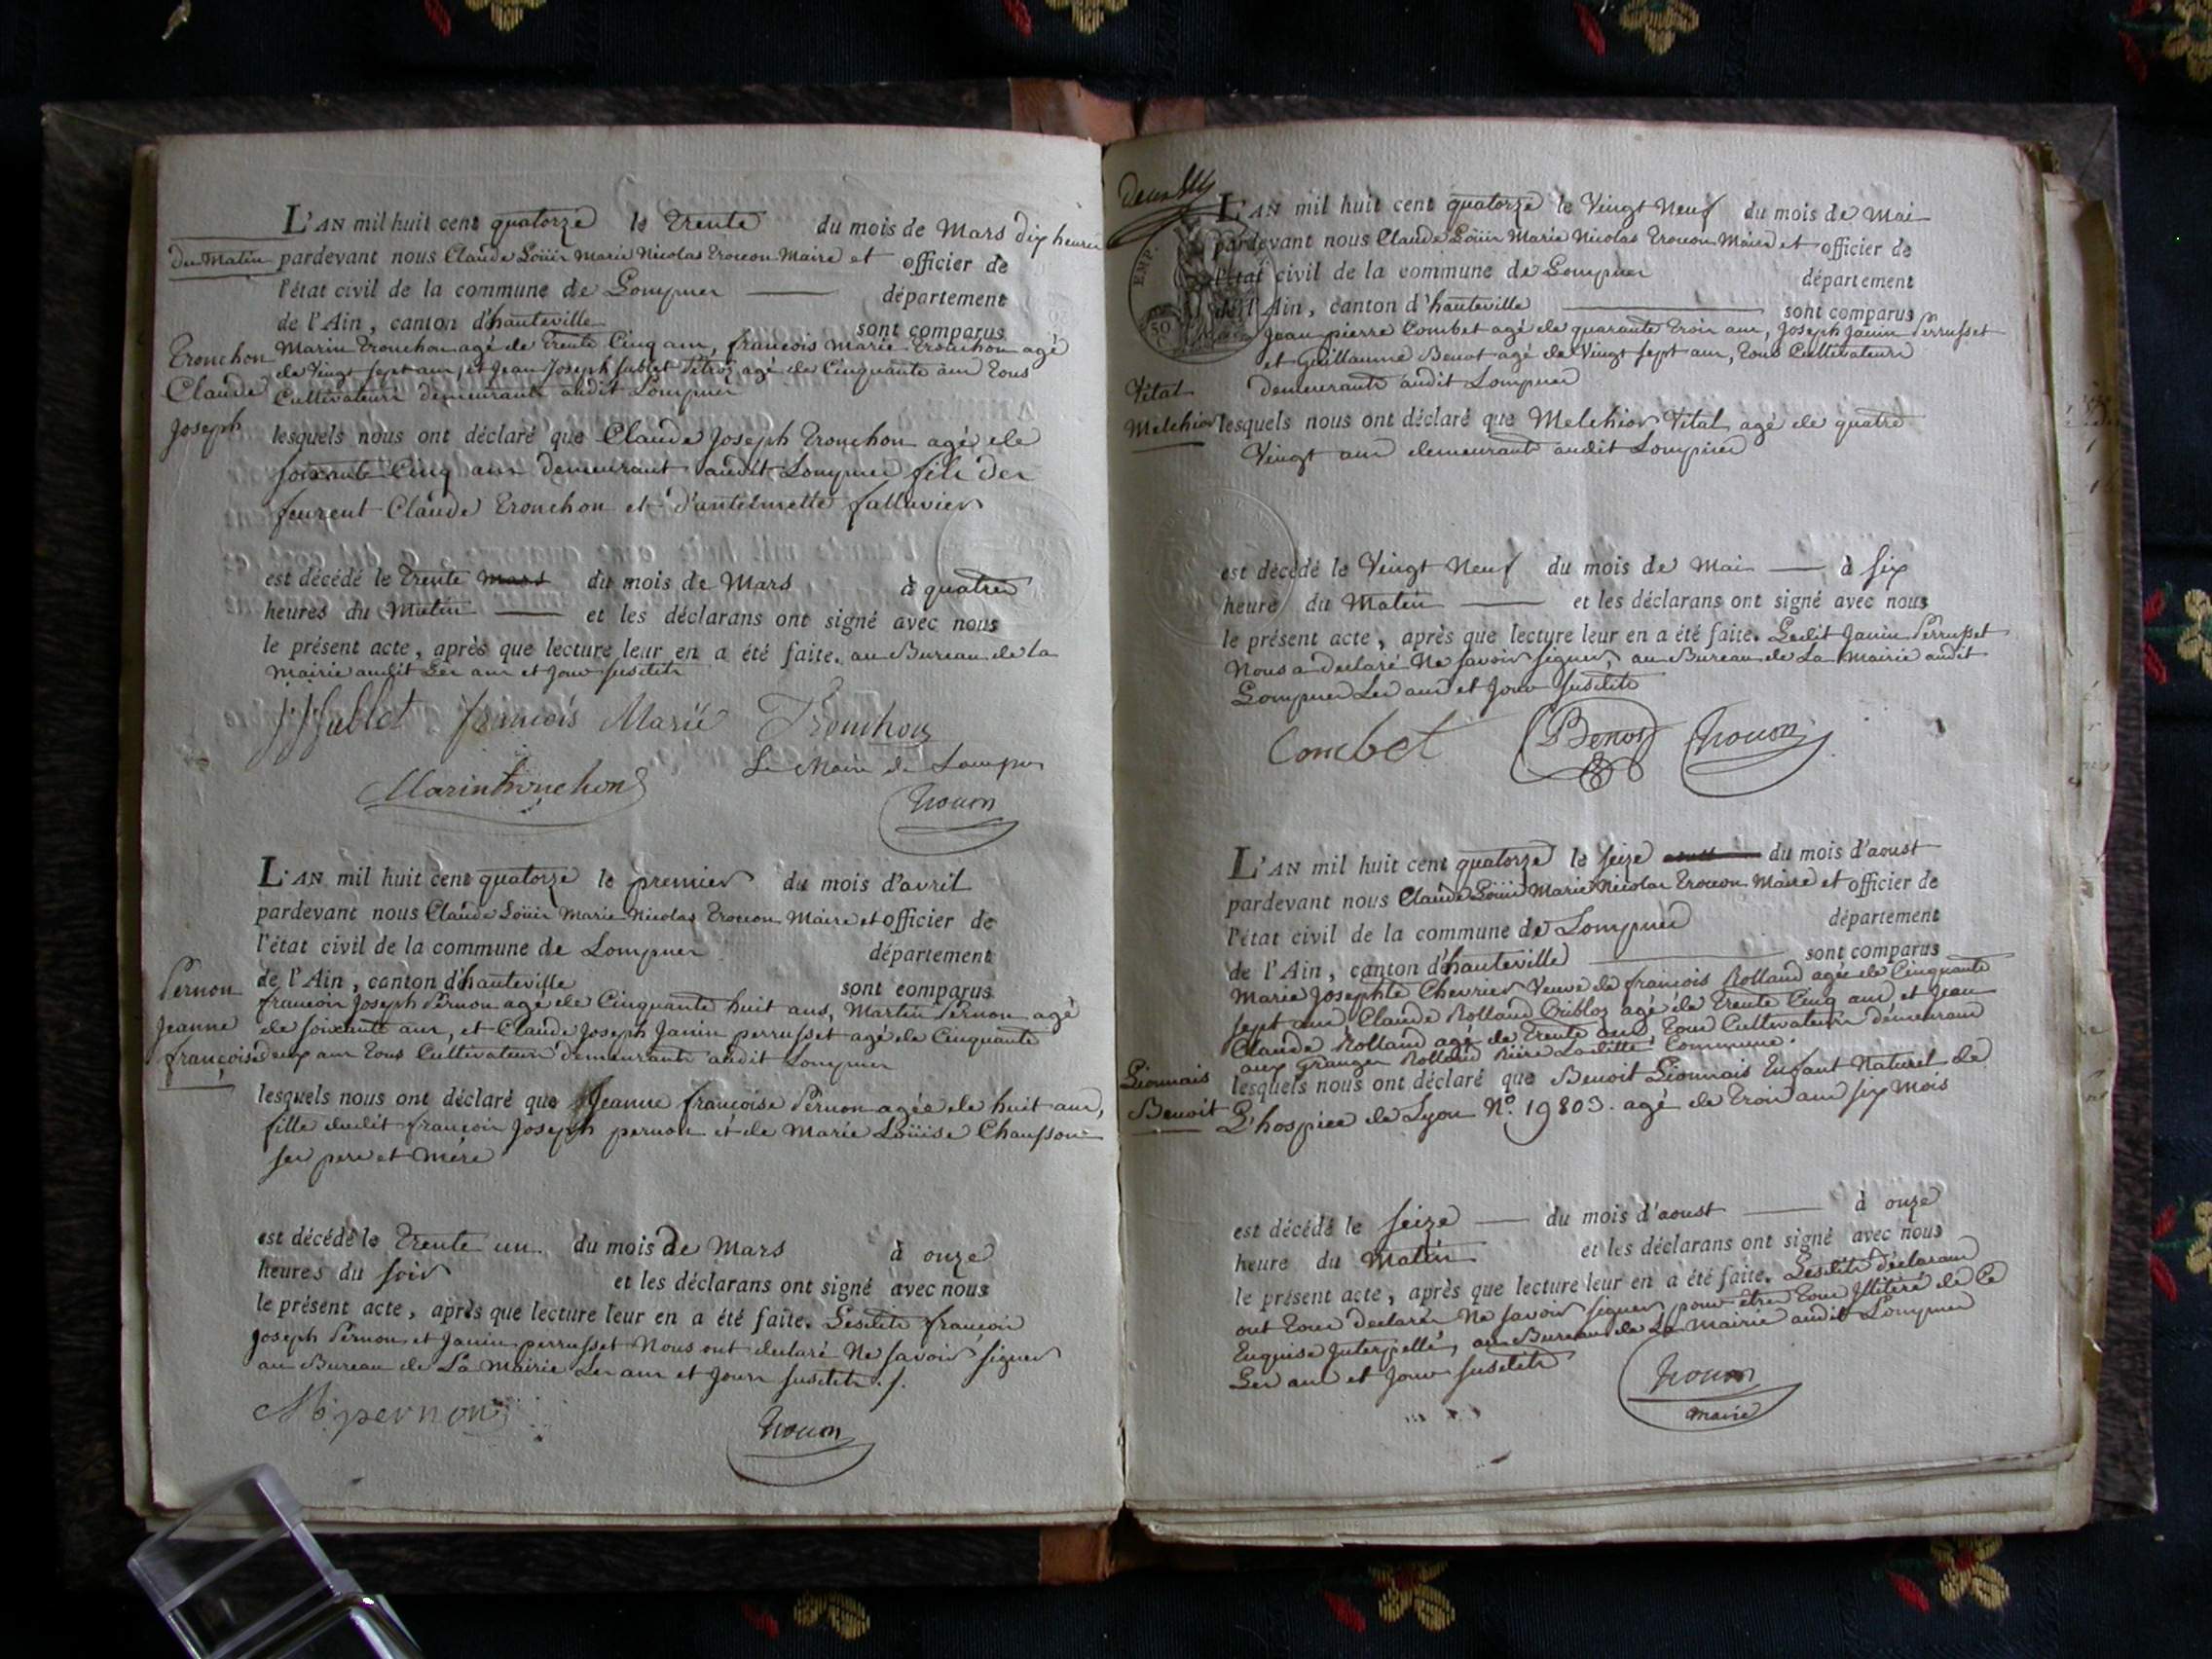 L'AN mil huit cent quatorze le trente du mois de Mars dix heures
du Matin pardevant nous Claude Loüis Marie Nicolas Trocon Maire et officier de
l'état civil de la commune de Lompner département
de l'Ain, canton d'hauteville sont comparus
Tronchon Marin Tronchon agé de trente Cinq ans, françois Marie Tronchon agé
de Vingt sept ans, et Jean Joseph Sublet agé de Cinquante ans tous
Claude Cultivateurs demeurants audit Lompner
Joseph lesquels nous ont déclaré que Claude Joseph Tronchon agé de
soixante Cinq ans demeurant audit Lompner fils des
feurent Claude Tronchon et d'antelmette fallavier
est décédé le trente du mois de Mars à quatre
heures du Matin et les déclarans ont signé avec nous
le présent acte, après que lecture leur en a été faite. au Bureau de la
Mairie audit Les ans et Jour susdits
JJ Sublet françois Marie Tronchon
Marin tronchon Le Maire de Lompner
Trocon
L'AN mil huit cent quatorze le premier du mois d'avril
pardevant nous Claude Loüis Marie Nicolas Trocon Maire et officier de
l'état civil de la commune de Lompner département
de l'Ain, canton d'hauteville sont comparus
Pernon françois Joseph Pernon agé de Cinquante huit ans, Martin Pernon agé
Jeanne de soixante ans, et Claude Joseph Janin perrusset agé de Cinquante
françoise deux ans tous Cultivateurs demeurants audit Lompner
lesquels nous ont déclaré que Jeanne françoise Pernon agée de huit ans,
fille dudit françois Joseph pernon et de Marie Loüise Chausson
ses pere et mere
est décédé le trente un du mois de Mars à onze
heures du soir et les déclarans ont signé avec nous
le présent acte, après que lecture leur en a été faite. Lesdits françois
Joseph Pernon et Janin perrusset Nous ont declaré Ne savoir signer
au Bureau de La Mairie Les ans et Jours susdits
M pernon
Trocon
L'AN mil huit cent quatorze le Vingt Neuf du mois de Mai
pardevant nous Claude Loüis Marie Nicolas Trocon Maire et officier de
l'état civil de la commune de Lompner département
de l'Ain, canton d'hauteville sont comparus
EMP.
50 C
Jean pierre Combet agé de quarante trois ans, Joseph Janin Perrusset
et Guillaume Benot agé de Vingt sept ans, tous Cultivateurs
Vital demeurants audit Lompner
Melchior lesquels nous ont déclaré que Melchior Vital agé de quatre
Vingt ans demeurant audit Lompner
est décédé le Vingt Neuf du mois de Mai à six
heure du Matin et les déclarans ont signé avec nous
le présent acte, après que lecture leur en a été faite. Ledit Janin Perrusset
Nous a declaré Ne savoir signer, au Bureau de La Mairie audit
Lompner Les ans et Jour susdits
Combet Benot Trocon
L'AN mil huit cent quatorze le seize du mois d'aoust
pardevant nous Claude Loüis Marie Nicolas Trocon Maire et officier de
l'état civil de la commune de Lompner département
de l'Ain, canton d'hauteville sont comparus
Marie Josephte Chevrier Veuve de françois Rolland agée de Cinquante
sept ans Claude Rolland agé de trente Cinq ans, et Jean
Claude Rolland agé de trente ans tous Cultivateurs demeurans
aux Granges Rolland Riere Laditte Commune.
Lionnais lesquels nous ont déclaré que Benoit Lionnais Enfant Naturel de
Benoit L'hospice de Lyon N° 19803. agé de trois ans six Mois
est décédé le seize du mois d'aoust à onze
heure du Matin et les déclarans ont signé avec nous
le présent acte, après que lecture leur en a été faite. Lesdits déclarans
ont tous declaré Ne savoir signer pour être tous Illitéré de Ce
Enquise Interpellé, au Bureau de La Mairie audit Lompner
Les ans et Jour susdits
Trocon
Maire